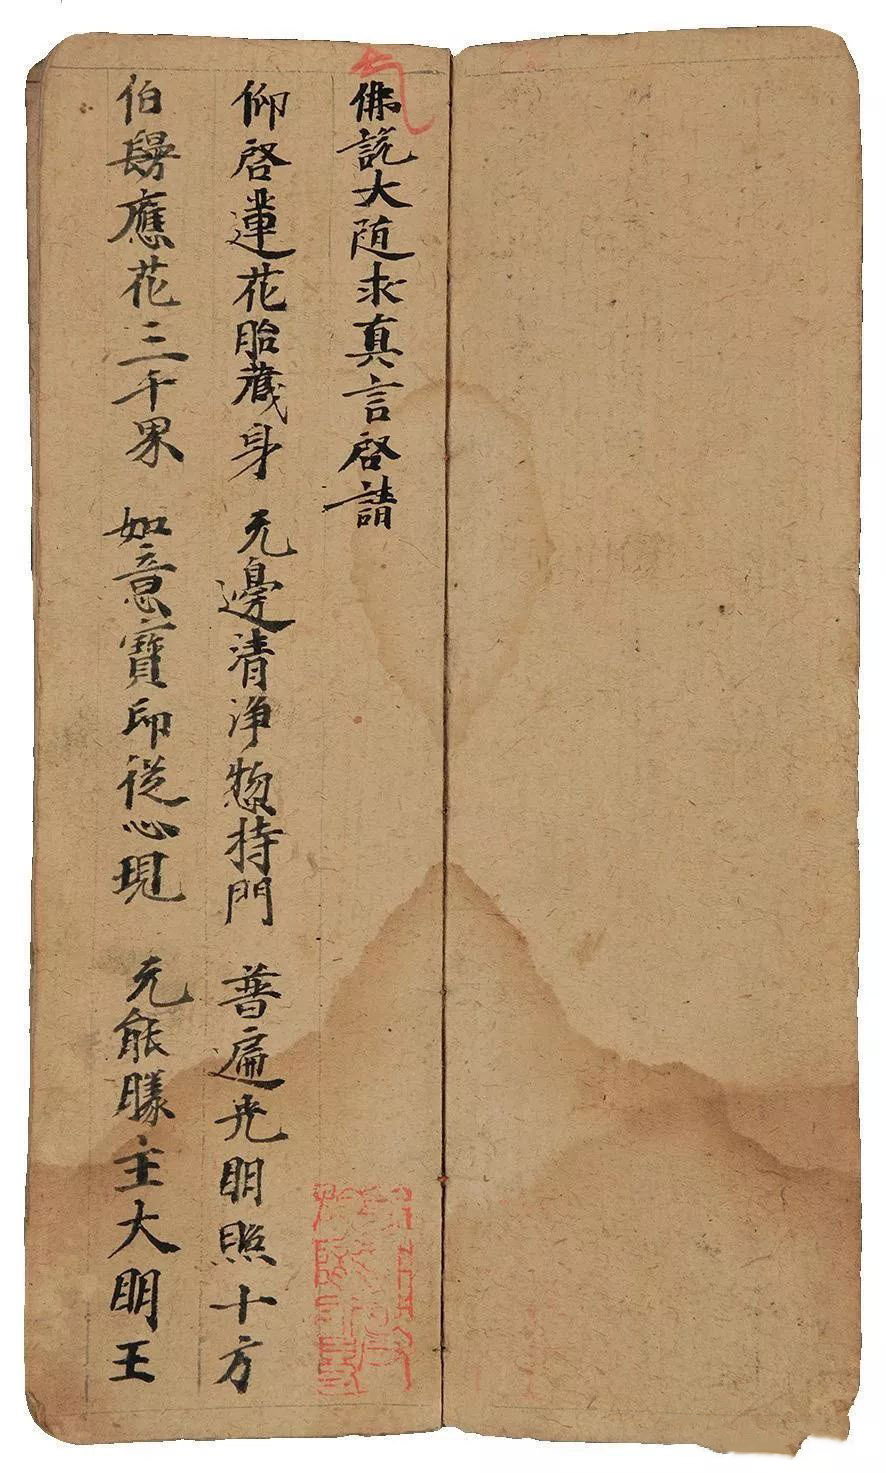 佛説大随求真言啓請
仰啓蓮花胎藏身 无邊清浄惣持門 普遍光明照十方
伯鬘應花三千果 如意寶印從心現 无能勝主大明王